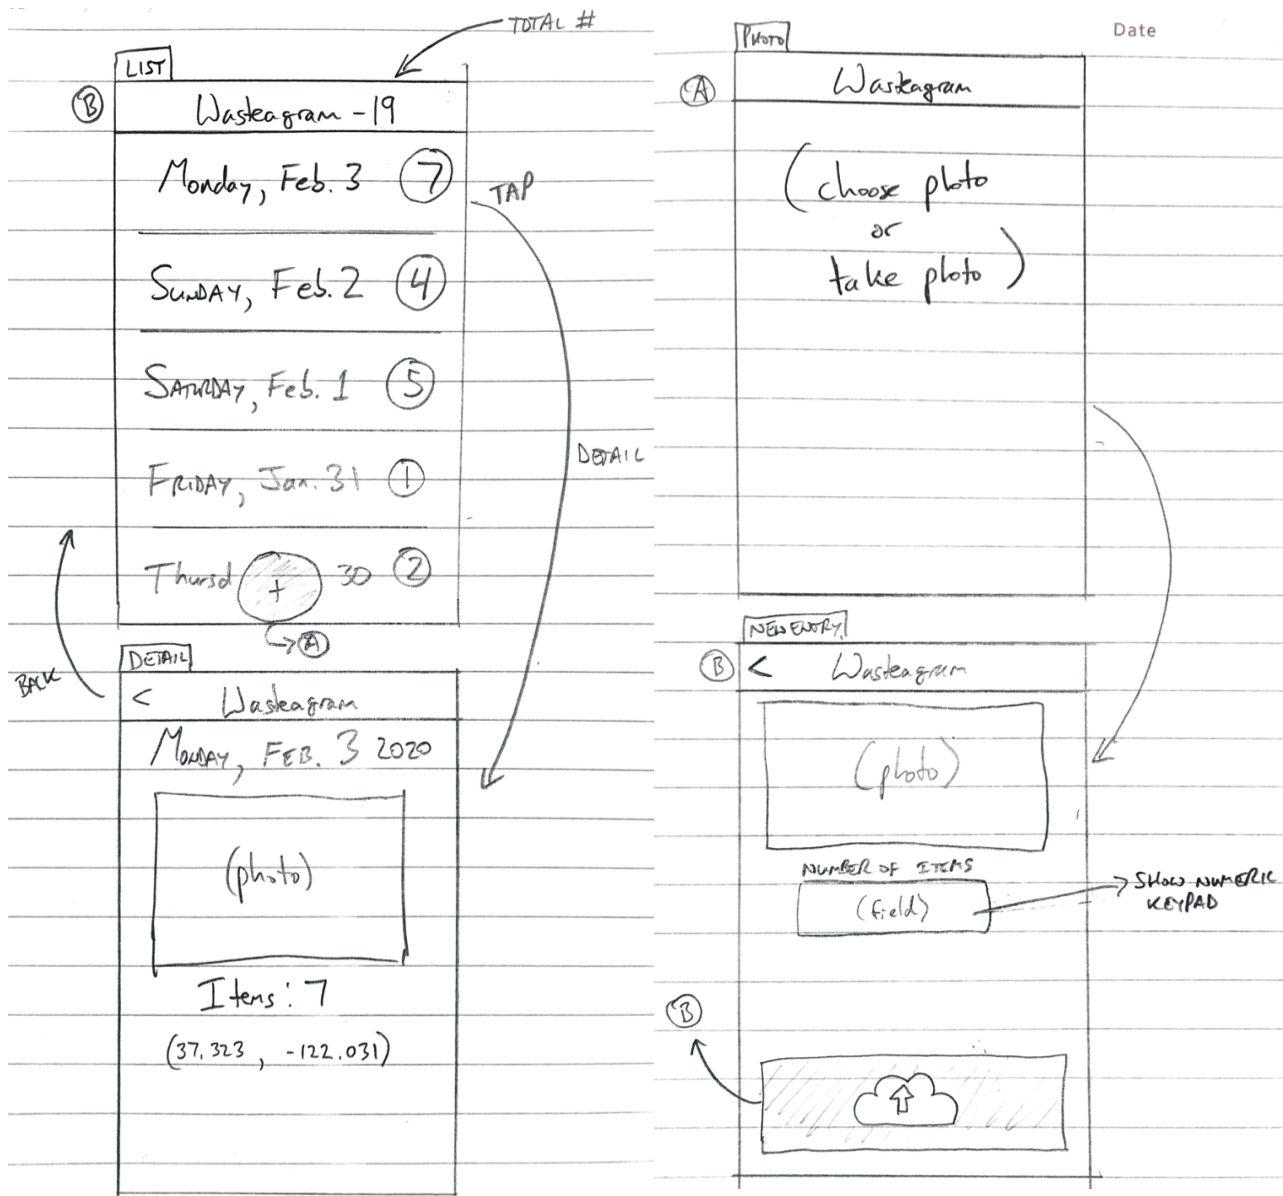 TOTAL #
LIST
B
Wasteagram - 19
Monday, Feb. 3 7
TAP
Sunday, Feb. 2 4
Saturday, Feb. 1 5
DETAIL
Friday, Jan. 31 1
Thursd + 30 2
A
BACK
DETAIL
< Wasteagram
Monday, Feb. 3 2020
(photo)
Items: 7
(37.323, -122.031)
Date
PHOTO
A
Wasteagram
(choose photo
or
take photo)
NEW ENTRY
B
< Wasteagram
(photo)
NUMBER OF ITEMS
(field)
SHOW NUMERIC
KEYPAD
B